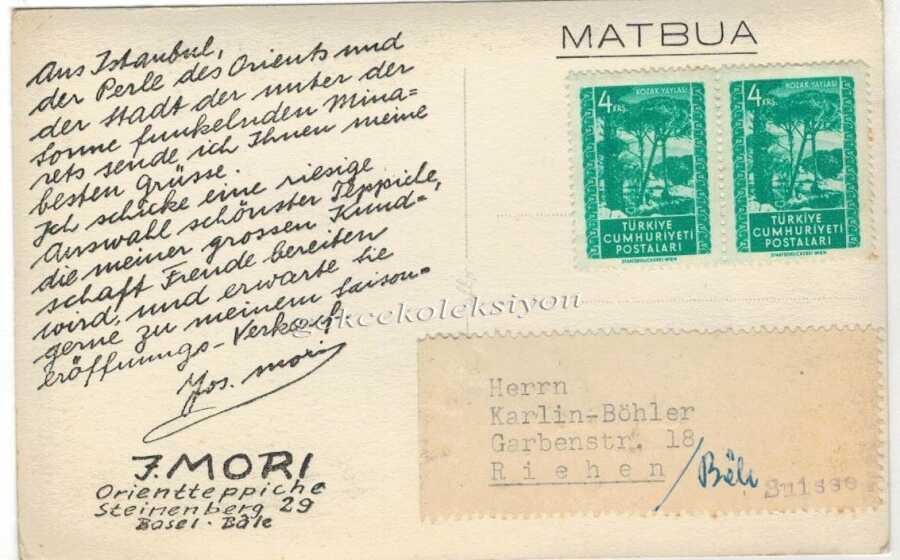 Aus Istanbul,
der Perle des Orients und
der Stadt der unter der
Sonne funkelnden Mina=
rets sende ich Ihnen meine
besten Grüsse.
Ich schicke eine riesige
Auswahl schönster Teppiche,
die meiner grossen Kund=
schaft Freude bereiten
wird, und erwarte Sie
gerne zu meinem Saison=
eröffnungs-Verkauf
Jos. Mori
J. MORI
Orientteppiche
Steinenberg 29
Basel · Bâle
MATBUA
4 KRŞ.
KOZAK YAYLASI
TÜRKİYE
CUMHURİYETİ
POSTALARI
STAATSDRUCKEREI WIEN
4 KRŞ.
KOZAK YAYLASI
TÜRKİYE
CUMHURİYETİ
POSTALARI
STAATSDRUCKEREI WIEN
gokcekoleksiyon
Herrn
Karlin-Böhler
Garbenstr. 18
Riehen / Bâle
Suisse